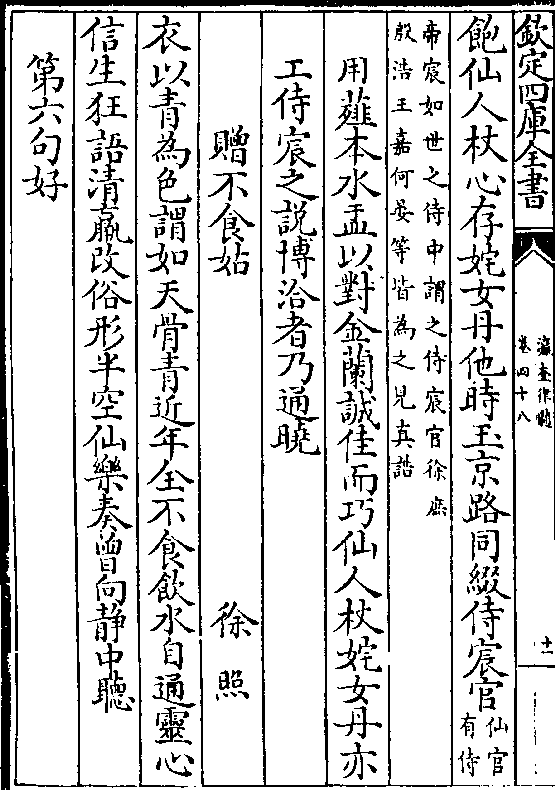 欽定四庫全書
瀛奎律髓
卷四十八
十一
飽仙人杖心存姹女丹他時玉京路同綴侍宸官
仙官
有侍
帝宸如世之侍中謂之侍宸官徐庶
殷浩王嘉何晏等皆為之見真誥
用薤本水盂以對金蘭誠佳而巧仙人杖姹女丹亦
工侍宸之說博洽者乃通曉
贈不食姑
徐照
衣以青為色謂如天骨青近年全不食飲水自通靈心
信生狂語清羸改俗形半空仙樂奏曾向静中聽
第六句好